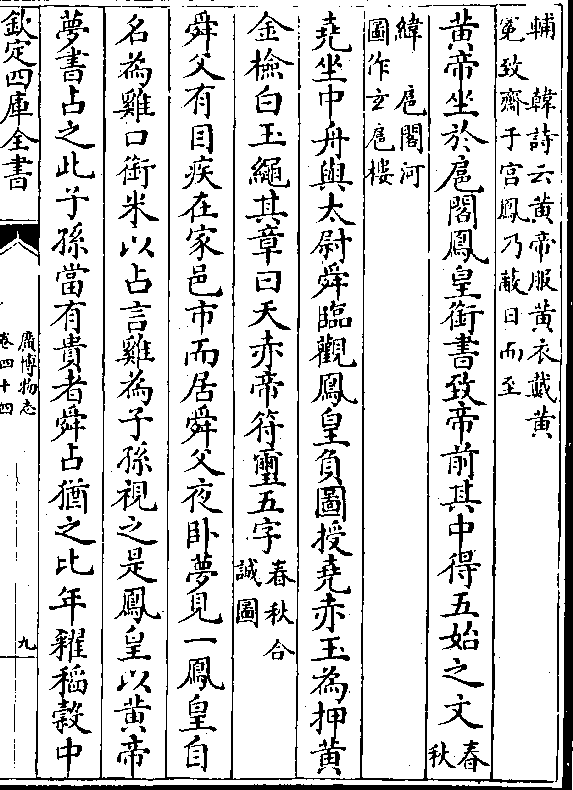 輔　韓詩云黄帝服黄衣戴黄
冕致齋于宫鳳乃蔽日而至
黄帝坐於扈閣鳳皇銜書致帝前其中得五始之文春
秋
緯　扈閣河
圖作玄扈樓
堯坐中舟與太尉舜臨觀鳳皇負圖授堯赤玉為押黄
金檢白玉繩其章曰天赤帝符璽五字春秋合
誠圖
舜父有目疾在家邑市而居舜父夜卧夢見一鳳皇自
名為雞口銜米以占言雞為子孫視之是鳳皇以黄帝
夢書占之此子孫當有貴者舜占猶之比年糴稻穀中
欽定四庫全書
廣博物志
卷四十四
九